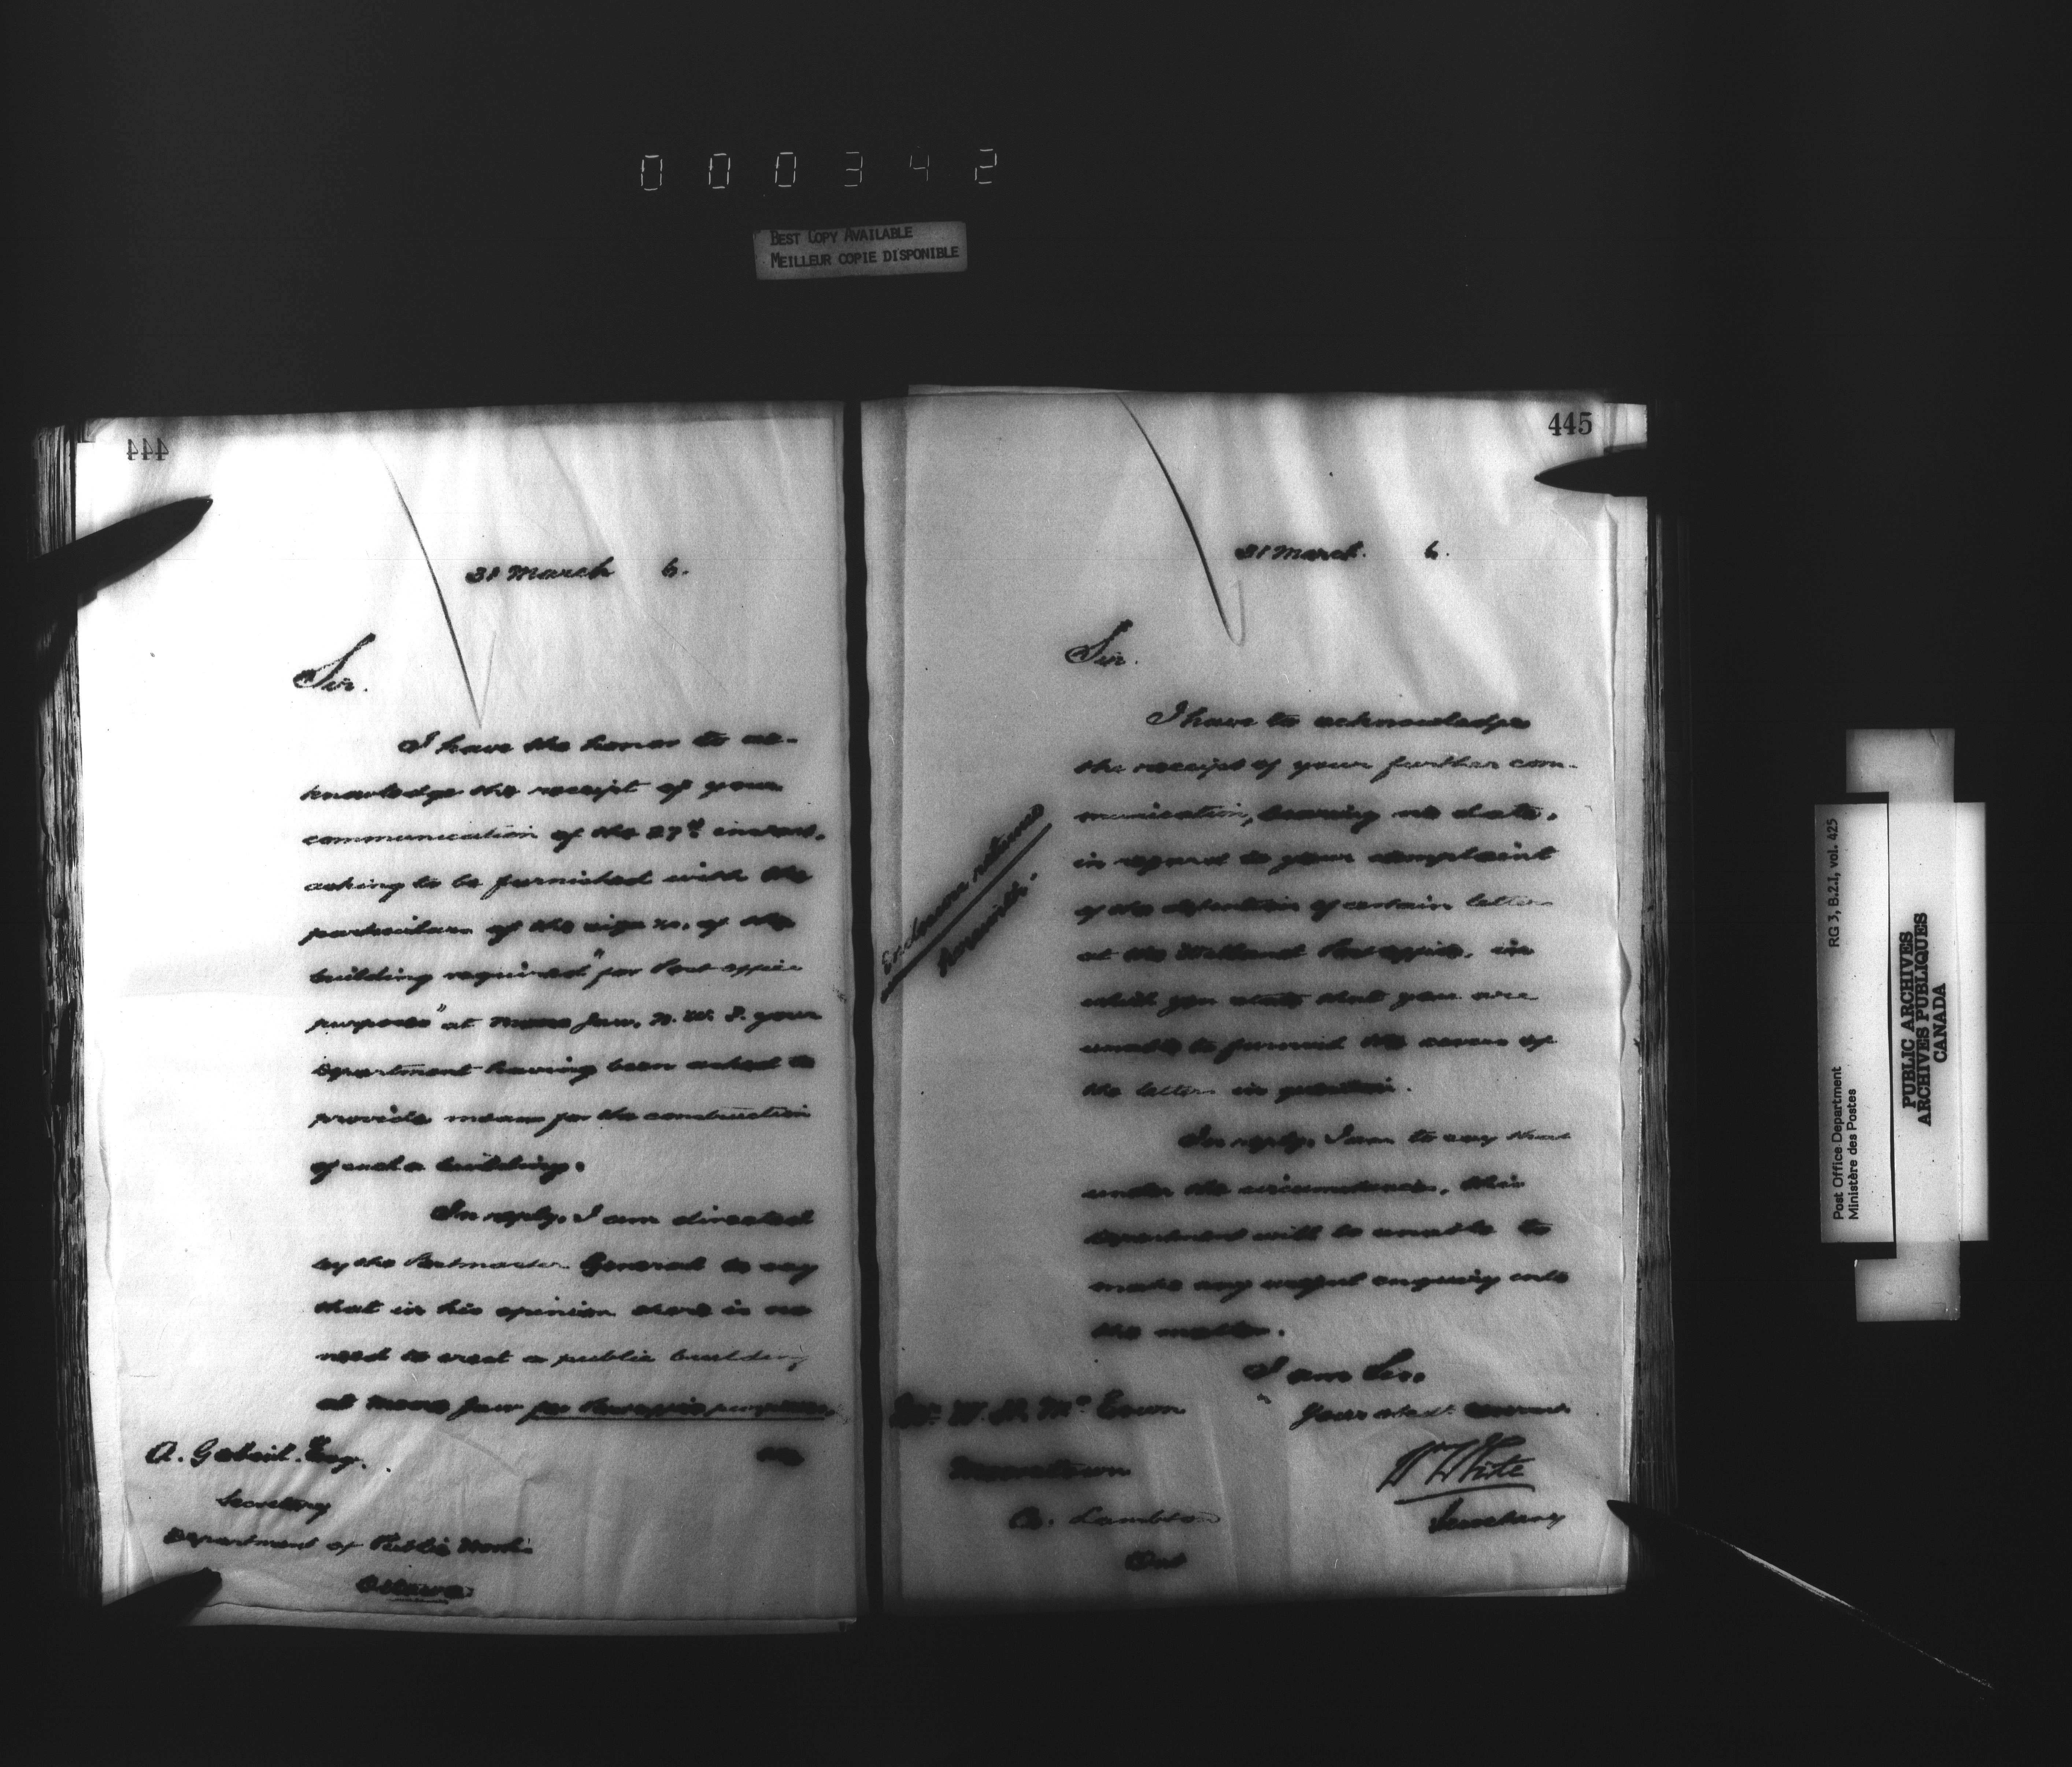 000342
BEST COPY AVAILABLE
MEILLEUR COPIE DISPONIBLE
444
31 March 6.
Sir.
I have the honor to ac-
knowledge the receipt of your
communication of the 27th instant,
asking to be furnished with the
particulars of the size &c. of the
building required "for Post office
purposes" at Moose Jaw, N. W. T. your
Department having been asked to
provide means for the construction
of such a building.
In reply, I am directed
by the Postmaster General to say
that in his opinion there is no
need to erect a public building
at Moose Jaw for Post office purposes,
A. Gobeil. Esq.
Secretary
Department of Public Works
Ottawa
445
31 March. 6.
Sir.
I have to acknowledge
the receipt of your further com-
munication, bearing no date,
in regard to your complaint
of the detention of certain letters
at the Welland Post office, in
which you state that you are
unable to furnish the covers of
the letters in question.
In reply, I am to say that
under the circumstances, this
Department will be unable to
make any useful enquiry into
the matter.
I am Sir,
Your obedt. servant
Wm White
Secretary
Enclosures returned
herewith.
Mr. W. H. Mc Eown
Mooretown
Co. Lambton
Ont
Post Office Department RG 3, B.2.1, vol. 425
Ministère des Postes
PUBLIC ARCHIVES
ARCHIVES PUBLIQUES
CANADA